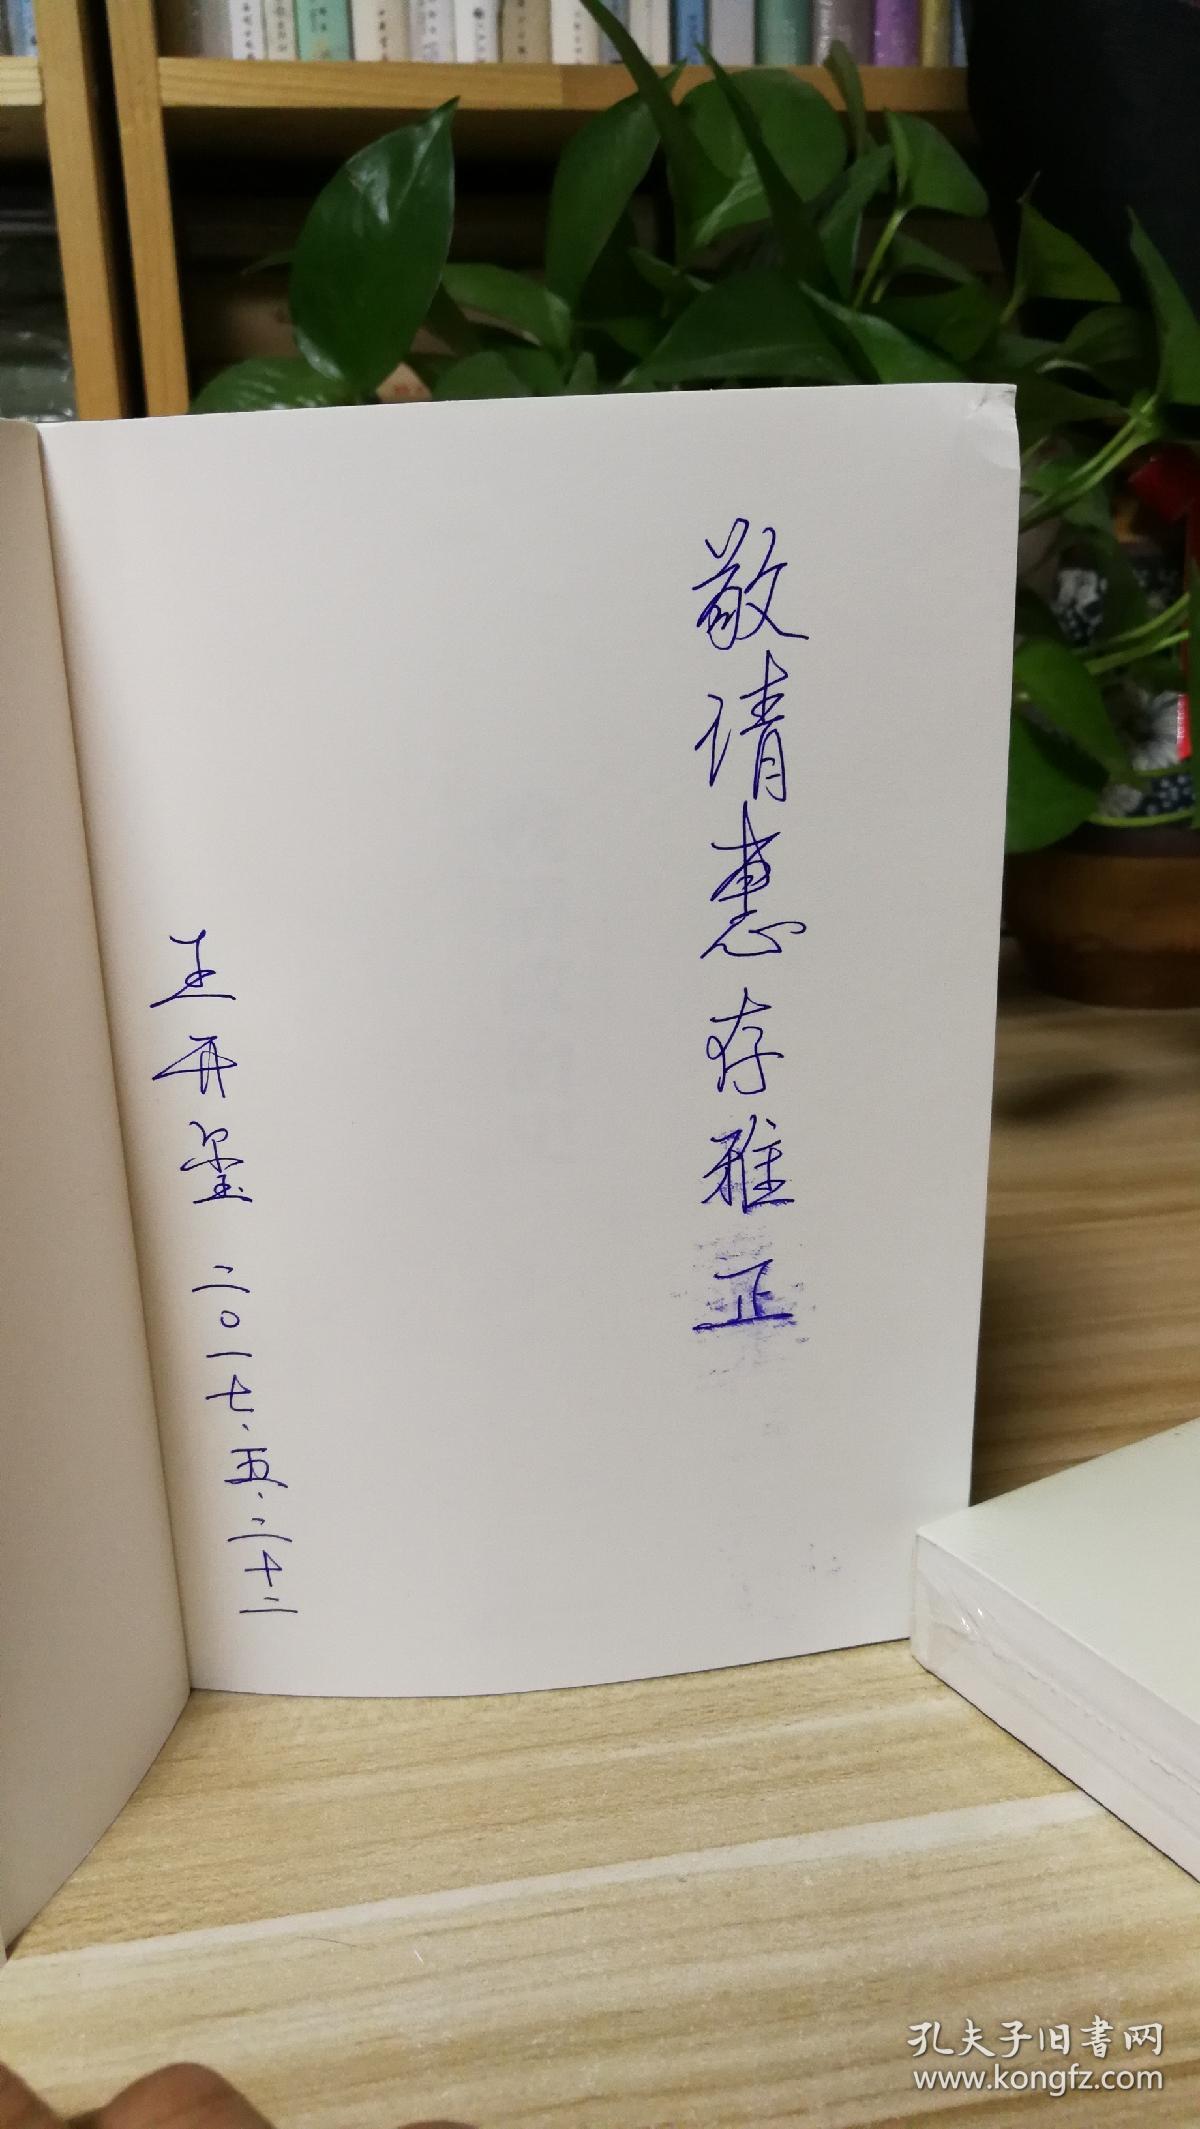 敬请惠存雅正
王开玺 二〇一七、五、二十二
孔夫子旧書网
www.kongfz.com